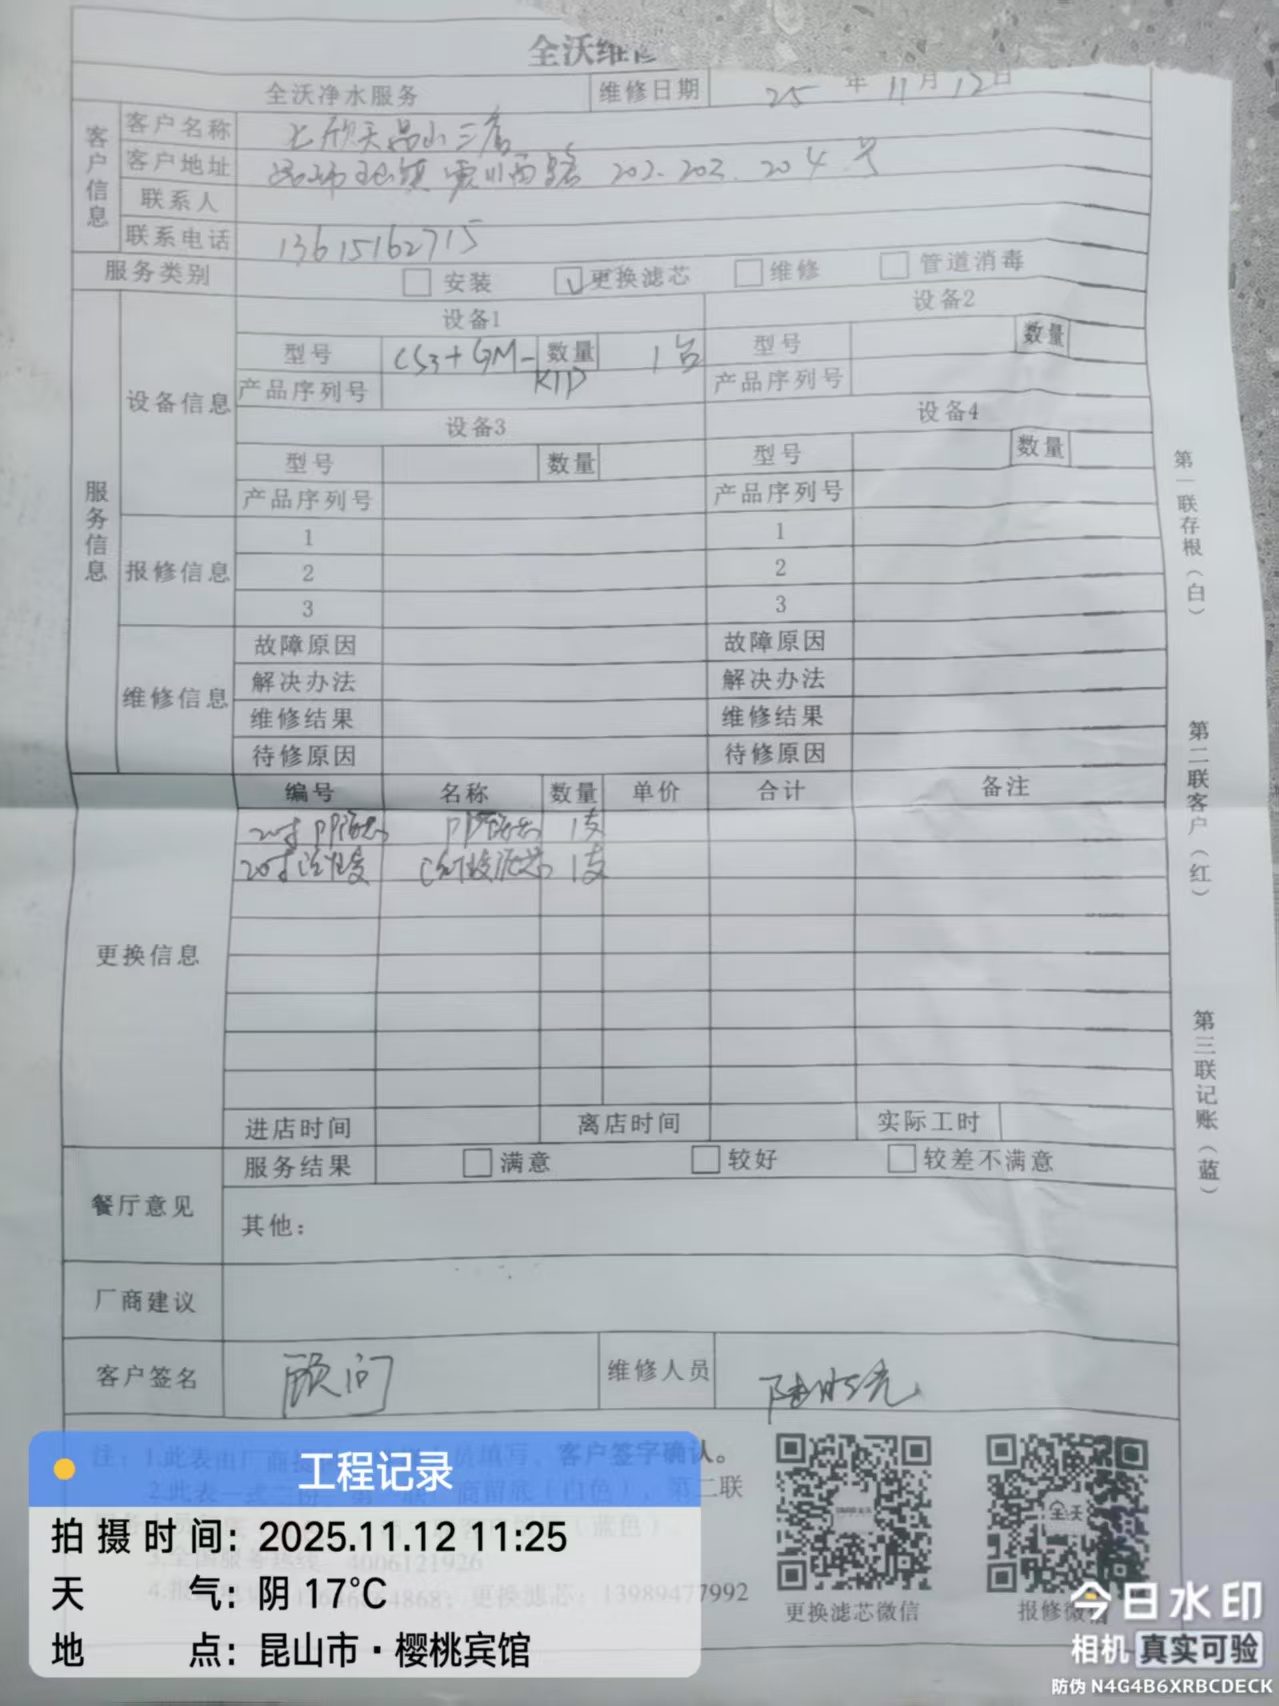 全沃维修
全沃净水服务 维修日期 25 年 11 月 12 日
客户信息
客户名称 昆山三店
客户地址 西路 202.203.204号
联系人
联系电话 13615162715
服务类别 安装 更换滤芯 维修 管道消毒
服务信息
设备信息
设备1 设备2
型号 CS3+GM- 数量 1台 型号 数量
KIP
产品序列号 产品序列号
设备3 设备4
型号 数量 型号 数量
产品序列号 产品序列号
报修信息
1 1
2 2
3 3
维修信息
故障原因 故障原因
解决办法 解决办法
维修结果 维修结果
待修原因 待修原因
更换信息
编号 名称 数量 单价 合计 备注
20寸PP滤芯 PP滤芯 1支
20寸 滤芯 1支
进店时间 离店时间 实际工时
餐厅意见
服务结果 满意 较好 较差不满意
其他：
厂商建议
客户签名 顾问 维修人员
第一联存根（白）
第二联客户（红）
第三联记账（蓝）
注：1.此表由厂商 员填写，客户签字确认。
2.此表一式 商留底（白色），第二联
（蓝色）
3.全国服务热线：4006121926
4.报 868；更换滤芯：13989477992
更换滤芯微信 报修微信
全沃
工程记录
拍摄时间：2025.11.12 11:25
天气：阴 17℃
地点：昆山市·樱桃宾馆
今日水印
相机 真实可验
防伪 N4G4B6XRBCDECK